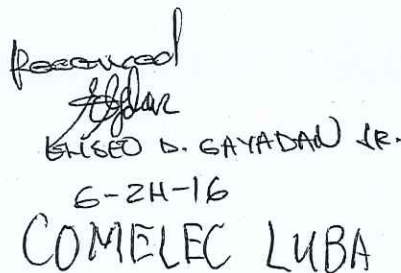 Received
ELISEO D. GAYADAN JR.
6-24-16
COMELEC LUBA